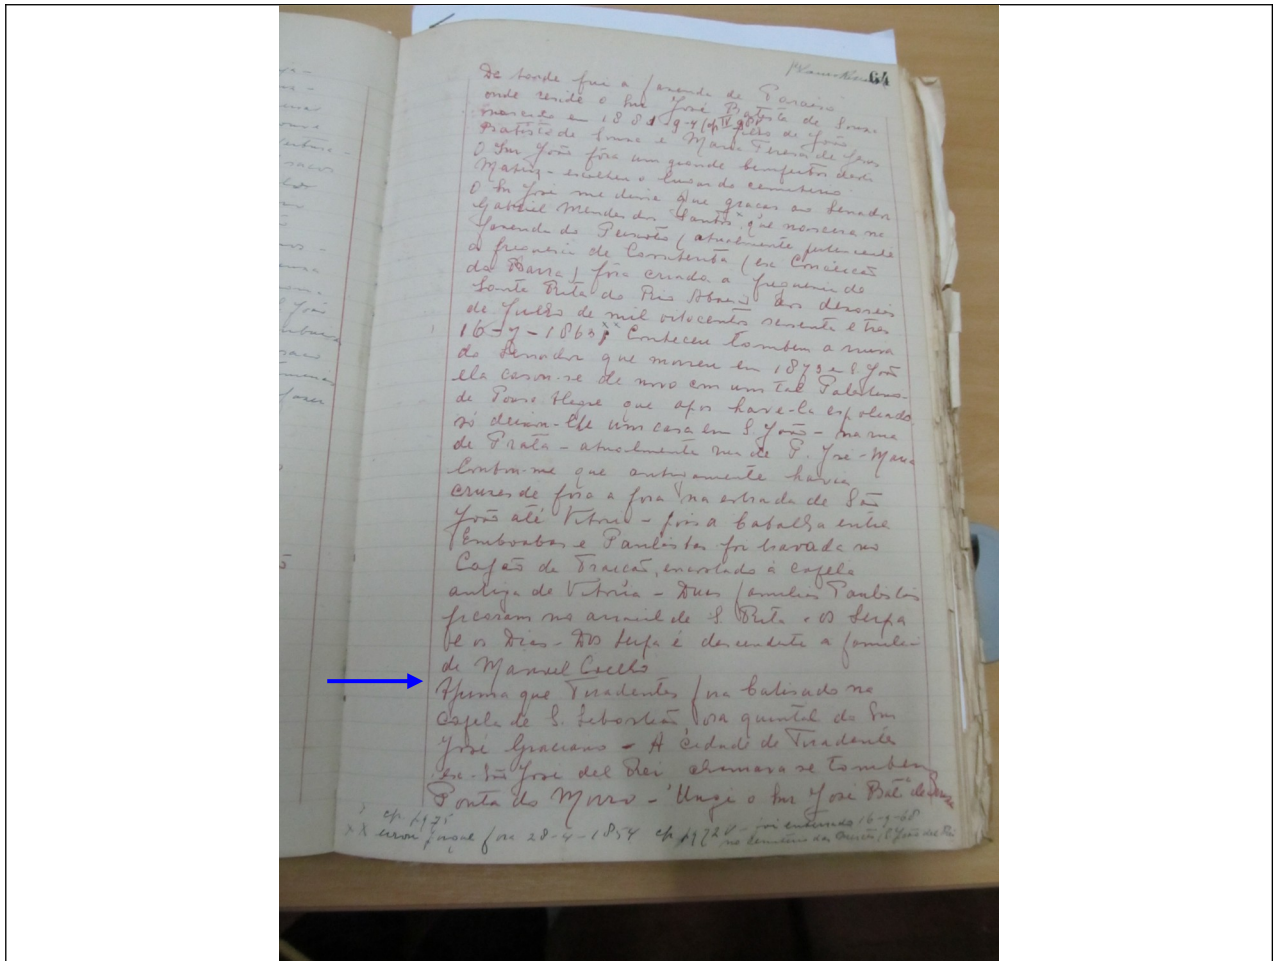 64
De tarde fui a fazenda de Paraiso
onde reside o Snr José Batista de Souza
nascido em 1881-9-4 filho de João
Batista de Souza e Maria Teresa de Jesus
O Snr João fôra um grande benfeitor desta
Matriz - escolheu o lugar do cemiterio
O Sr José me disse que graças ao Senador
Gabriel Mendes dos Santos que nascera na
fazenda do Peixoto (atualmente pertencente
a freguesia de Cassiterita (ex Conceição
da Barra) fôra criada a freguesia de
Santa Rita do Rio Abaixo aos dezaseis
de Julho de mil oitocentos sessenta e tres
16-7-1863 Conheceu tambem a viuva
do Senador que morreu em 1873 em S. João
ela casou-se de novo com um tal
de Pouso Alegre que apos have-la espoliado
só deixou-lhe um casa em S. João - na rua
de Prata - atualmente rua de P. José-Maria
Contou-me que antigamente havia
cruzes de fora a fora na estrada de São
João até Vitoria - pois a batalha entre
Emboabas e Paulistas foi travada no
Capão de Traição, encostado à capela
antiga de Vitória - Duas familias Paulistas
ficaram no arraial de S. Rita - os Serpa
e os Dias - Dos Serpa é descendente a familia
de Manoel Coelho
Afirma que Tiradentes fora batisado na
capela de S. Sebastião ora quintal do Snr
José Graciano - A cidade de Tiradentes
ex-São José del Rei chamava se tambem
Ponta do Morro - Ungi o Snr José Bata de Souza
cfr. pg 75
x x errou porque fora 28-4-1854 cfr. pg 72v - foi enterrado 16-9-68
no cemiterio das Mercês, S João del Rei